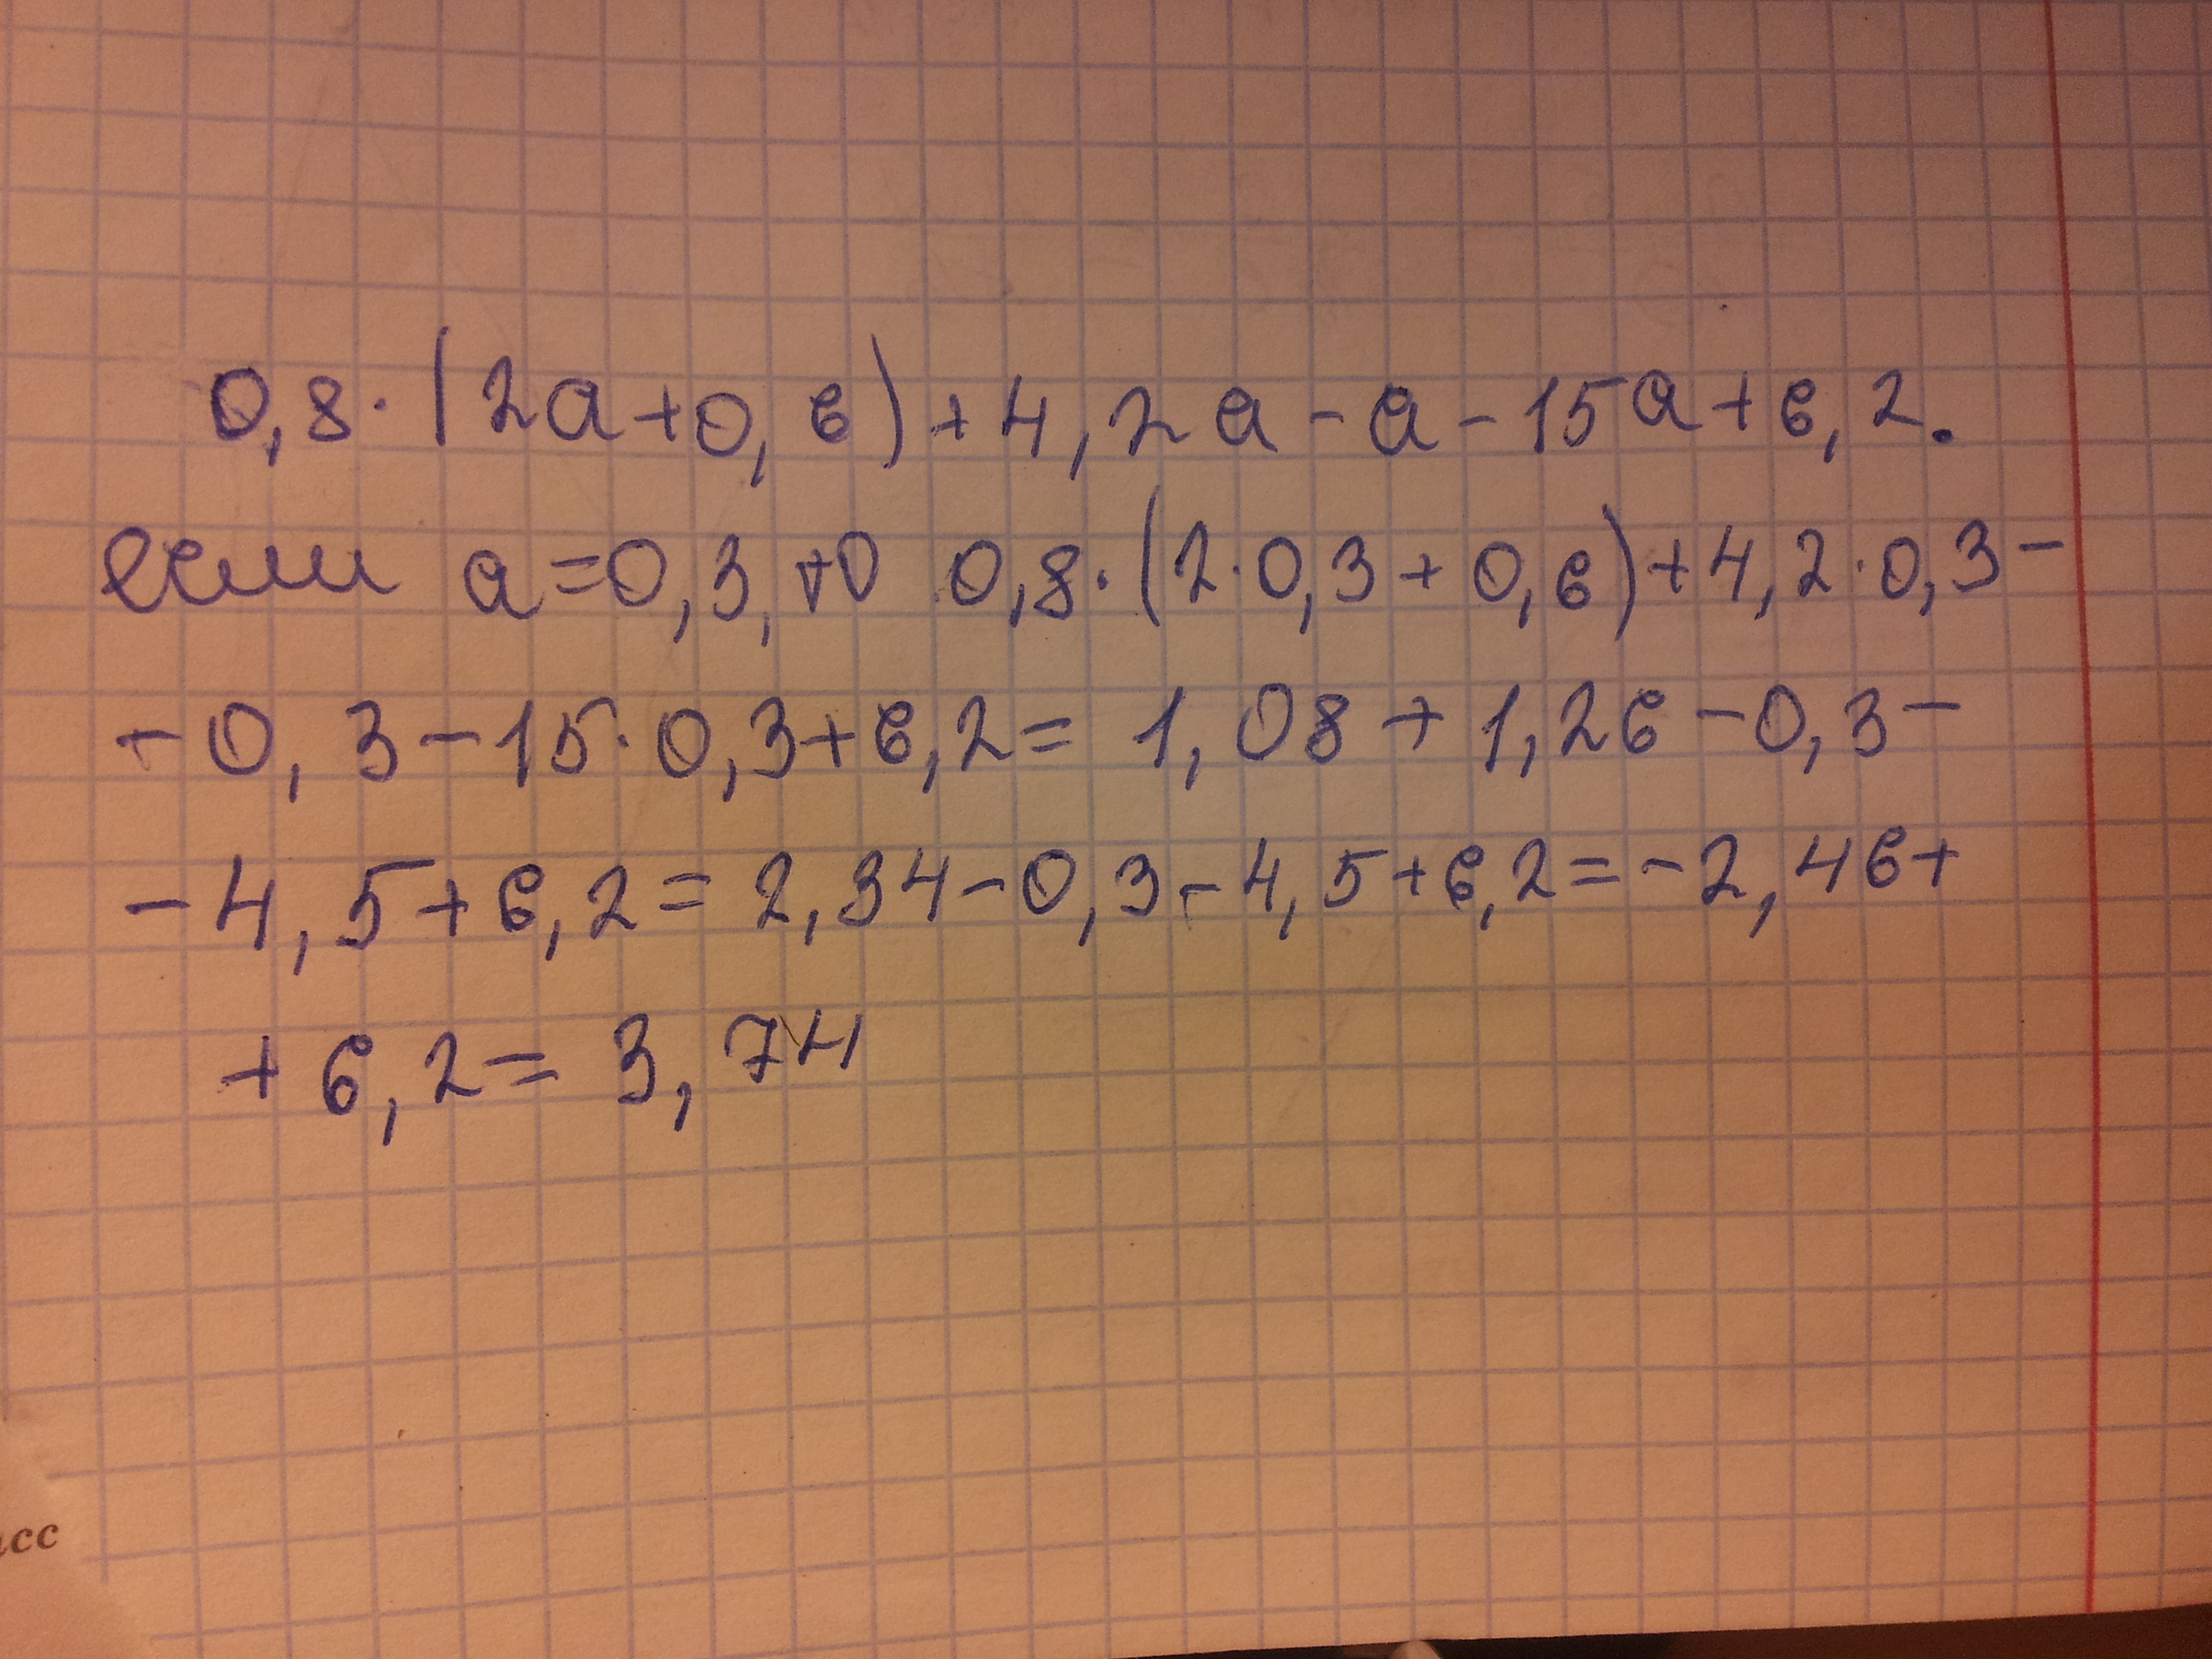 0,8·(2a+0,6)+4,2a-a-15a+6,2.
если a=0,3, то 0,8·(2·0,3+0,6)+4,2·0,3-
-0,3-15·0,3+6,2=1,08+1,26-0,3-
-4,5+6,2=2,34-0,3-4,5+6,2=-2,46+
+6,2=3,74